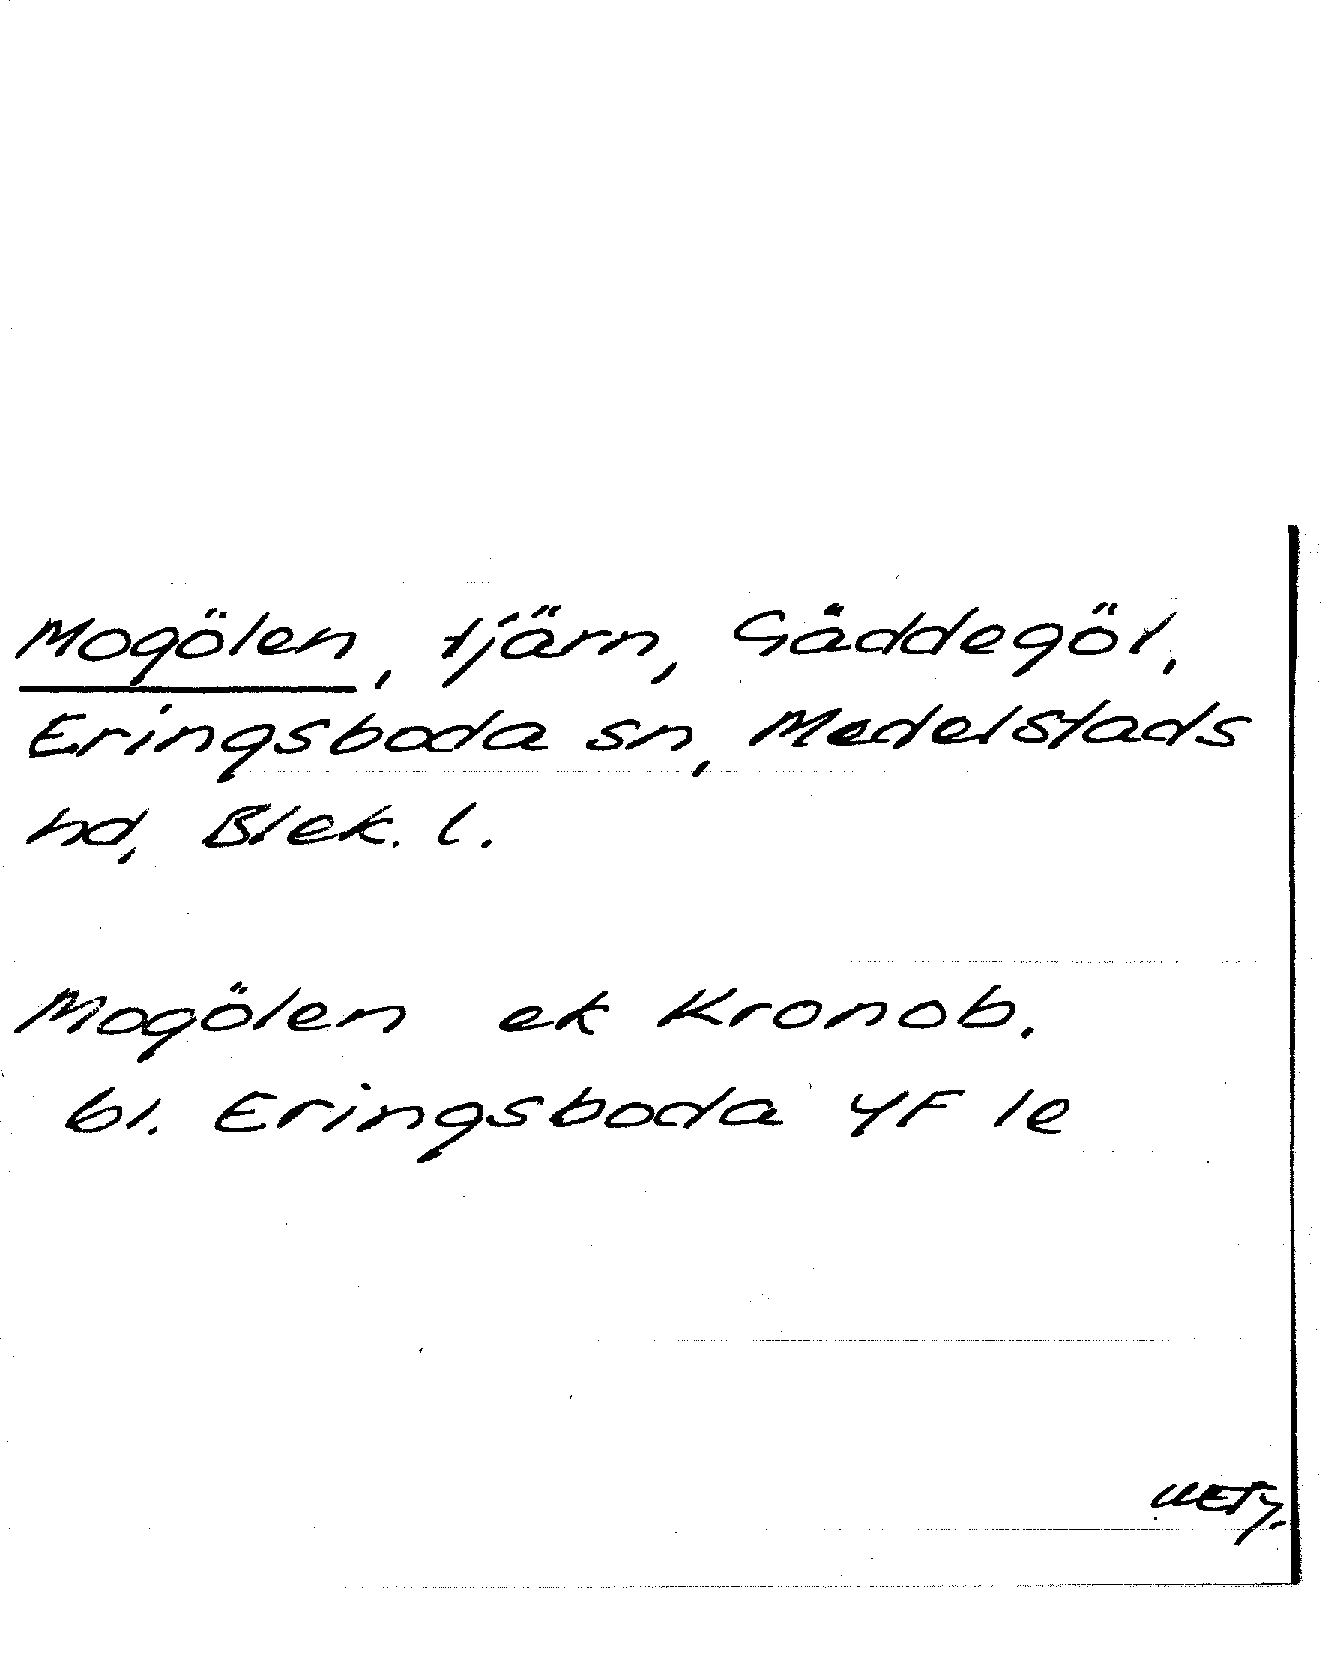 Mogölen, tjärn, Gäddegöl,
Eringsboda sn, Medelstads
hd, Blek. l.
Mogölen ek Kronob.
bl. Eringsboda 4F 1e